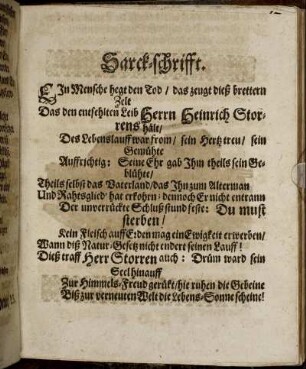 Sarck-schrifft.
EIn Mensche hegt den Tod / das zeugt dieß brettern
Zelt
Das den entsehlten Leib Herrn Heinrich Stor-
rens hält /
Des Lebenslauff war from / sein Hertz treu / sein
Gemühte
Auffrichtig: Seine Ehr gab Ihm theils sein Ge-
blühte /
Theils selbst das Vaterland / das Ihn zum Alterman
Und Rahtsglied hat erkohrn: dennoch Er nicht entrann
Der unverrückte Schluß stund feste: Du must
sterben /
Kein Fleisch auff Erden mag ein Ewigkeit erwerben /
Wann diß Natur-Gesetz nicht endert seinen Lauff!
Dieß traff Herr Storren auch: Drüm ward sein
Seel hinauff
Zur Himmels-Freud gerükt / hie ruhen die Gebeine
Biß zur verneuten Welt die Lebens-Sonne scheine!